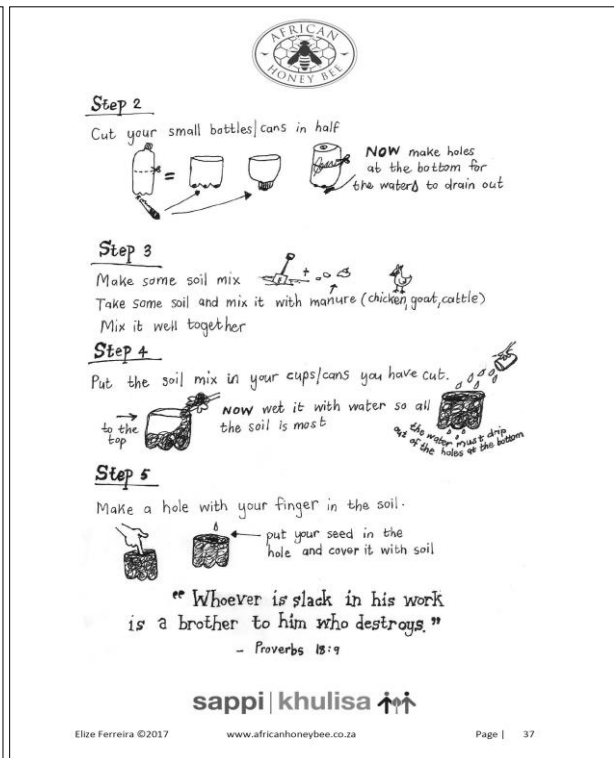 AFRICAN
HONEY BEE
Step 2
Cut your small bottles/cans in half
NOW make holes
at the bottom for
the waters to drain out
=
Step 3
Make some soil mix +
Take some soil and mix it with manure (chicken, goat, cattle)
Mix it well together
Step 4
Put the soil mix in your cups/cans you have cut.
to the
top
NOW wet it with water so all
the soil is most
the water must drip
out of the holes at the bottom
Step 5
Make a hole with your finger in the soil.
put your seed in the
hole and cover it with soil
"Whoever is slack in his work
is a brother to him who destroys."
- Proverbs 18:9
sappi | khulisa
Elize Ferreira ©2017 www.africanhoneybee.co.za Page | 37